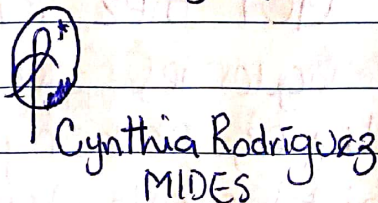 Cynthia Rodríguez
MIDES